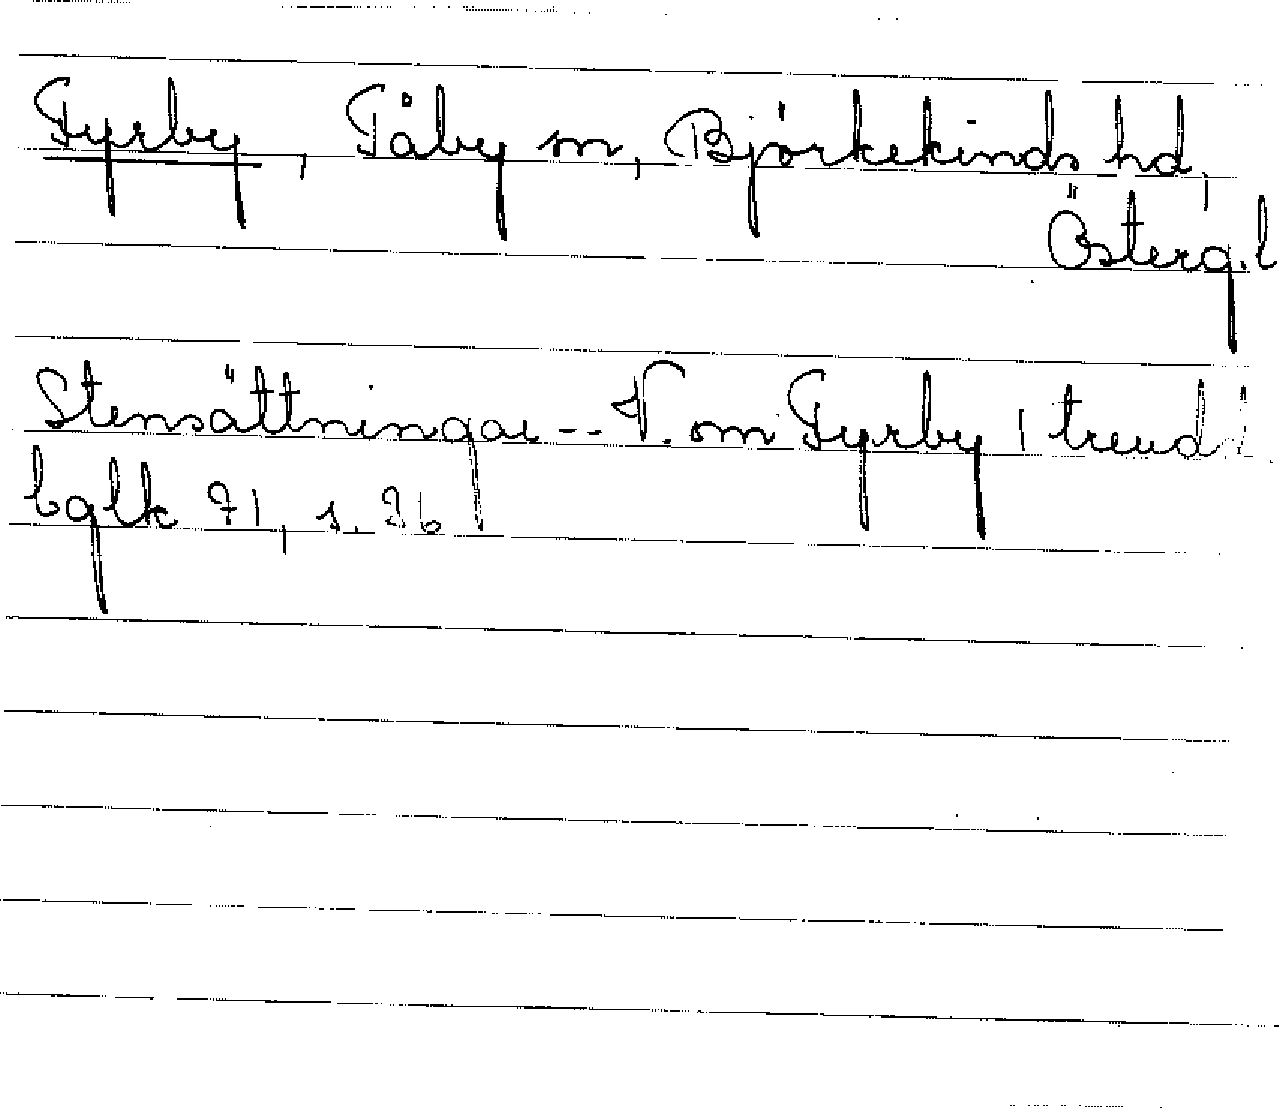 Tyrby, Tåby sn, Björkekinds hd,
Österg.l
Stensättningar -- V. om Tyrby
bglk 71, s. 26